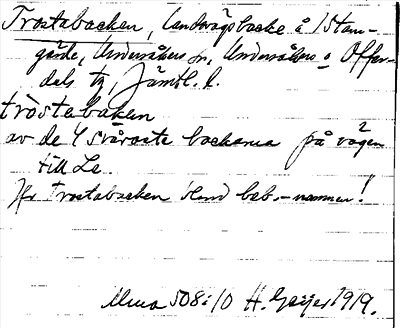 Trostabacken, landsvägsbacke å 1 Stam-
gärde, Undersåkers sn, Undersåkers o Offer-
dals tg, Jämtl. l.
tròstabaken
av de 4 svåraste backarna på vägen
till Le
Jfr Trostabacken bland beb.-namnen!
Ulma 508:10 H. Geijer 1919.